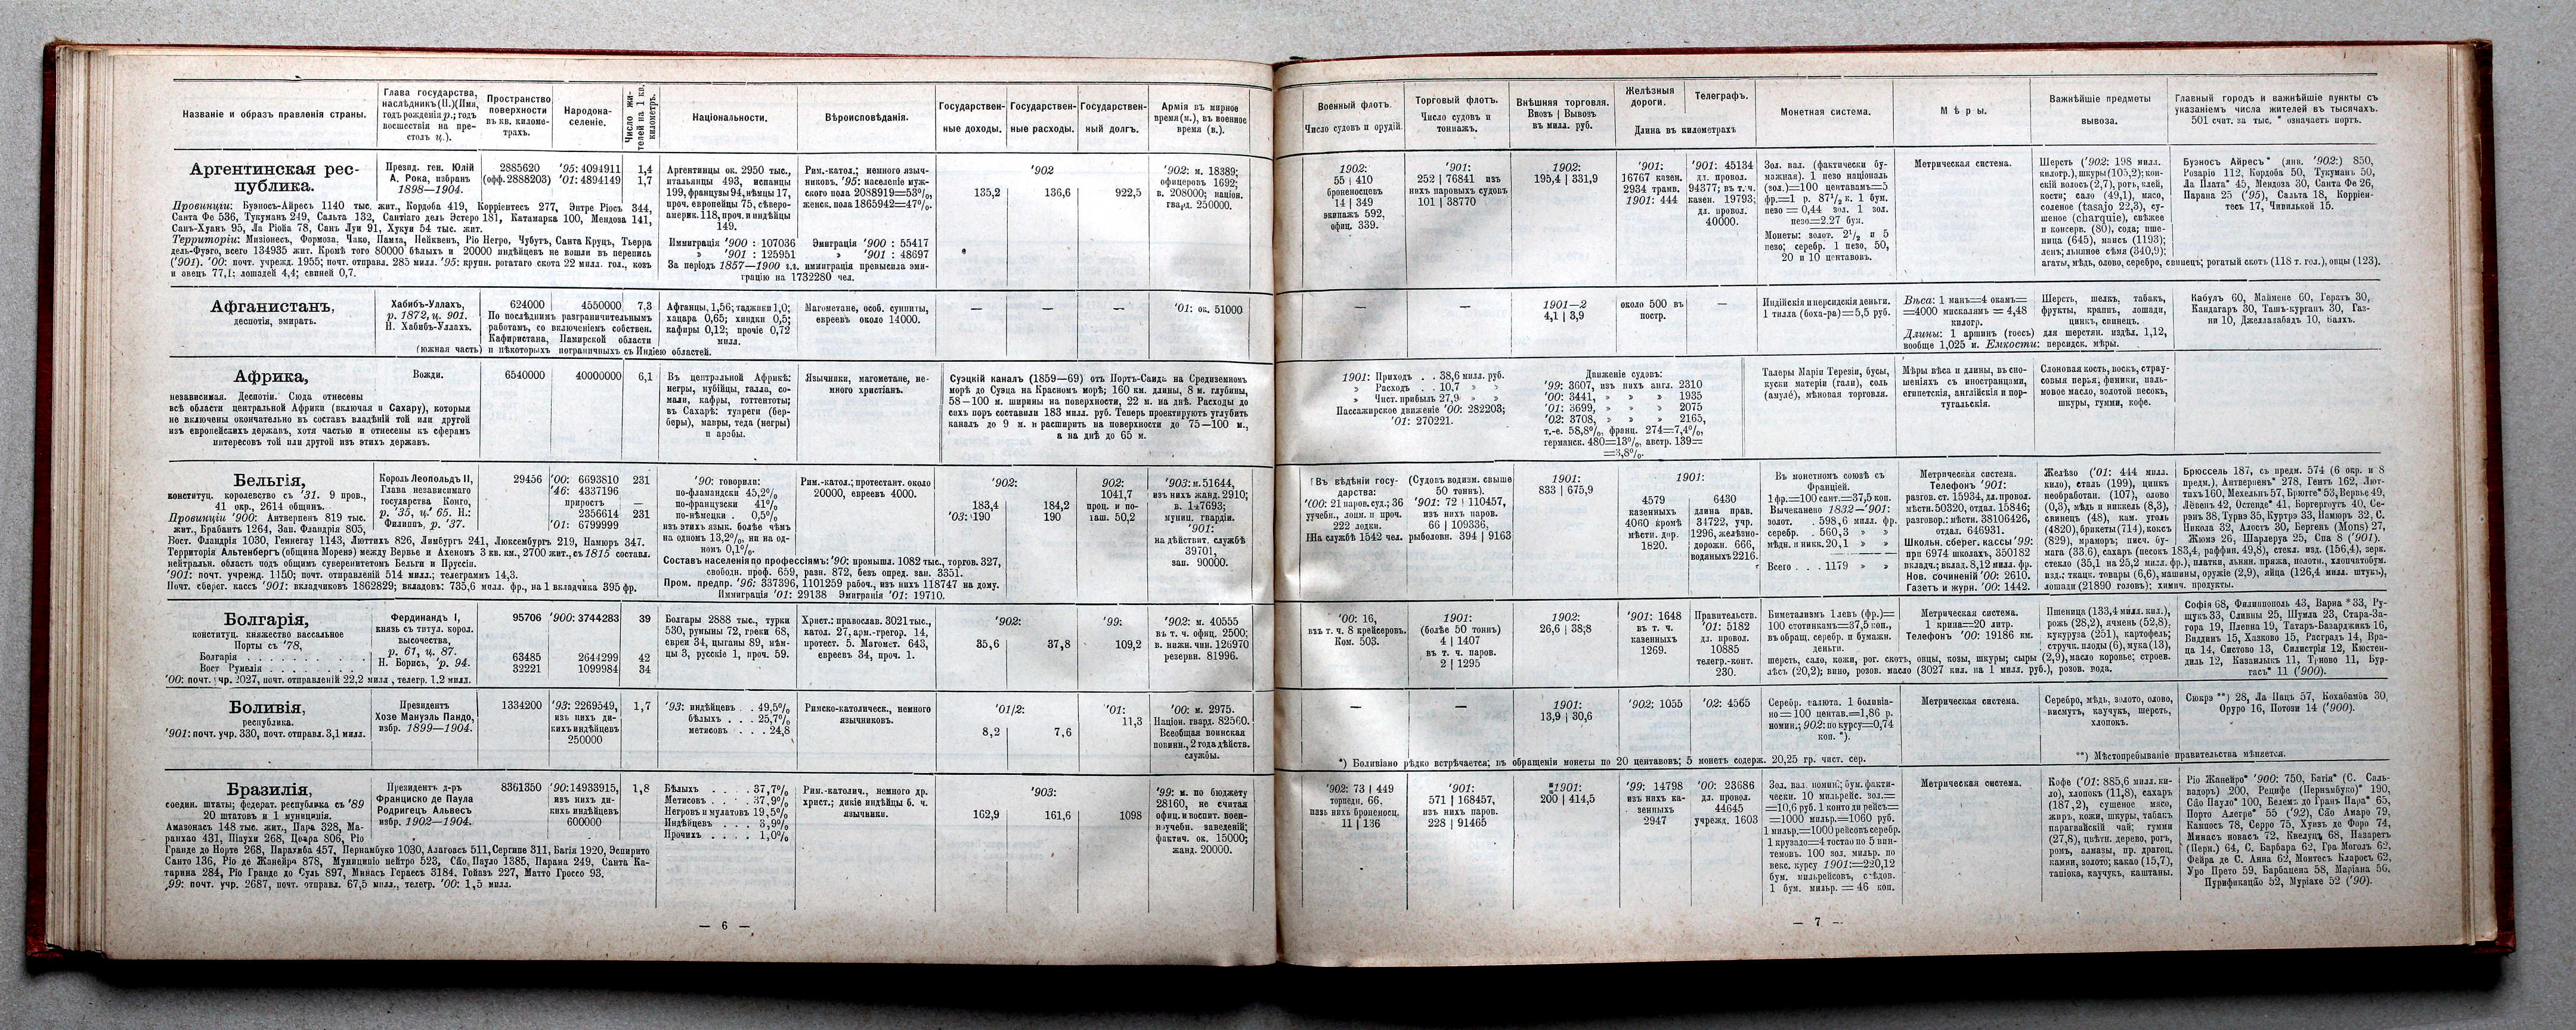 Названіе и образъ правленія страны.
Глава государства,
наслѣдникъ (Н.) (Имя,
годъ рожденія р.; годъ
восшествія на пре-
столъ ц.).
Пространство
поверхности
въ кв. киломе-
трахъ.
Народона-
селеніе.
Число жи-
телей на 1 кв.
километръ.
Національности.
Вѣроисповѣданія.
Государствен-
ные доходы.
Государствен-
ные расходы.
Государствен-
ный долгъ.
Армія въ мирное
время (м.), въ военное
время (в.).
Аргентинская рес-
публика.
Презид. ген. Юлій
А. Рока, избранъ
1898—1904.
2885620
(офф. 2888203)
'95: 4094911
'01: 4894149
1,4
1,7
Аргентинцы ок. 2950 тыс.,
итальянцы 493, испанцы
199, французы 94, нѣмцы 17,
проч. европейцы 75, сѣверо-
америк. 118, проч. и индѣйцы
149.
Рим.-катол.; немного языч-
никовъ. '95: населеніе муж-
ского пола 2088919=53%,
женск. пола 1865942=47%.
'902
135,2
136,6
922,5
'902: м. 18389;
офицеровъ 1692;
в. 208000; націон.
гвард. 250000.
Провинціи: Буэносъ-Айресъ 1140 тыс. жит., Кордоба 419, Корріентесъ 277, Энтре Ріосъ 344,
Санта Фе 536, Тукуманъ 249, Сальта 132, Сантіаго дель Эстеро 181, Катамарка 100, Мендоза 141,
Санъ-Хуанъ 95, Ла Ріойа 78, Санъ Луи 91, Хухуи 54 тыс. жит.
Территоріи: Мизіонесъ, Формоза, Чако, Пампа, Нейквенъ, Ріо Негро, Чубутъ, Санта Круцъ, Тьерра
дель-Фуэго, всего 134935 жит. Кромѣ того 80000 бѣлыхъ и 20000 индѣйцевъ не вошли въ перепись
('901). '00: почт. учрежд. 1955; почт. отправл. 285 милл. '95: крупн. рогатаго скота 22 милл. гол., козъ
и овецъ 77,1; лошадей 4,4; свиней 0,7.
Иммиграція '900 : 107036 Эмиграція '900 : 55417
» '901 : 125951 » '901 : 48697
За періодъ 1857—1900 г.г. иммиграція превысила эми-
грацію на 1732280 чел.
Афганистанъ,
деспотія, эмиратъ.
Хабибъ-Уллахъ,
р. 1872, ц. 901.
Н. Хабибъ-Уллахъ.
624000
4550000
7,3
По послѣднимъ разграничительнымъ
работамъ, со включеніемъ собствен.
Кафиристана, Памирской области
(южная часть) и нѣкоторыхъ пограничныхъ съ Индіею областей.
Афганцы, 1,56; таджики 1,0;
хацара 0,65; хиндки 0,5;
кафиры 0,12; прочіе 0,72
милл.
Магометане, особ. сунниты,
евреевъ около 14000.
—
—
—
'01: ок. 51000
Африка,
независимая. Деспотіи. Сюда отнесены
всѣ области центральной Африки (включая и Сахару), которыя
не включены окончательно въ составъ владѣній той или другой
изъ европейскихъ державъ, хотя частью и отнесены къ сферамъ
интересовъ той или другой изъ этихъ державъ.
Вожди.
6540000
40000000
6,1
Въ центральной Африкѣ:
негры, нубійцы, галла, со-
мали, кафры, готтентоты;
въ Сахарѣ: туареги (бер-
беры), мавры, теда (негры)
и арабы.
Язычники, магометане, не-
много христіанъ.
Суэцкій каналъ (1859—69) отъ Портъ-Саида на Средиземномъ
морѣ до Суэца на Красномъ морѣ; 160 км. длины, 8 м. глубины,
58—100 м. ширины на поверхности, 22 м. на днѣ. Расходы до
сихъ поръ составили 183 милл. руб. Теперь проектируютъ углубить
каналъ до 9 м. и расширить на поверхности до 75—100 м.,
а на днѣ до 65 м.
Бельгія,
конституц. королевство съ '31. 9 пров.,
41 окр., 2614 общинъ.
Король Леопольдъ II,
Глава независимаго
государства Конго,
р. '35, ц. '65. Н.:
Филиппъ, р. '37.
29456
'00: 6693810
'46: 4337196
приростъ
2356614
'01: 6799999
231
—
231
Провинціи '900: Антверпенъ 819 тыс.
жит., Брабантъ 1264, Зап. Фландрія 805,
Вост. Фландрія 1030, Геннегау 1143, Люттихъ 826, Лимбургъ 241, Люксембургъ 219, Намюръ 347.
Территорія Альтенбергъ (община Моренэ) между Вервье и Ахеномъ 3 кв. км., 2700 жит., съ 1815 составл.
нейтральн. область подъ общимъ суверенитетомъ Бельгіи и Пруссіи.
'901: почт. учрежд. 1150; почт. отправленій 514 милл.; телеграммъ 14,3.
Почт. сберег. кассъ '901: вкладчиковъ 1862829; вкладовъ: 735,6 милл. фр., на 1 вкладчика 395 фр.
'90: говорили:
по-фламандски 45,2%
по-французски 41%
по-нѣмецки . 0,5%
изъ этихъ язык. болѣе чѣмъ
на одномъ 13,2%, ни на од-
номъ 0,1%.
Рим.-катол.; протестант. около
20000, евреевъ 4000.
Составъ населенія по профессіямъ: '90: промышл. 1082 тыс., торгов. 327,
свободн. проф. 659, разн. 872, безъ опред. зан. 3351.
Пром. предпр. '96: 337396, 1101259 рабоч., изъ нихъ 118747 на дому.
Иммиграція '01: 29138 Эмиграція '01: 19710.
'902:
183,4
'03: 190
184,2
190
902:
1041,7
проц. и по-
гаш. 50,2
'903: м. 51644,
изъ нихъ жанд. 2910;
в. 147693;
муниц. гвардіи.
'901:
на дѣйствит. службѣ
39701,
зап. 90000.
Болгарія,
конституц. княжество вассальное
Порты съ '78,
Болгарія . . . . . . . . . .
Вост Румелія . . . . . . . .
Фердинандъ I,
князь съ титул. корол.
высочества,
р. 61, ц. 87.
Н. Борисъ, 'р. 94.
95706
63485
32221
'900: 3744283
2644299
1099984
39
42
34
'00: почт. учр. 2027, почт. отправленій 22,2 милл., телегр. 1.2 милл.
Болгары 2888 тыс., турки
530, румыны 72, греки 68,
евреи 34, цыганы 89, нѣм-
цы 3, русскіе 1, проч. 59.
Христ.: православ. 3021 тыс.,
катол. 27, арм.-грегор. 14,
протест. 5. Магомет. 643,
евреевъ 34, проч. 1.
'902:
35,6
37,8
'99:
109,2
'902: м. 40555
въ т. ч. офиц. 2500;
в. нижн. чин. 126970
резервн. 81996.
Боливія,
республика.
'901: почт. учр. 330, почт. отправл. 3,1 милл.
Президентъ
Хозе Мануэль Пандо,
избр. 1899—1904.
1334200
'93: 2269549,
изъ нихъ ди-
кихъ индѣйцевъ
250000
1,7
'93: индѣйцевъ . . 49,5%
бѣлыхъ . . . 25,7%
метисовъ . . . 24,8
Римско-католическ., немного
язычниковъ.
'01/2:
8,2
7,6
'01:
11,3
'00: м. 2975.
Націон. гвард. 82560.
Всеобщая воинская
повинн., 2 года дѣйств.
службы.
Бразилія,
соедин. штаты; федерат. республика съ '89
20 штатовъ и 1 муниципія.
Президентъ д-ръ
Франциско де Паула
Родригецъ Альвесъ
избр. 1902—1904.
8361350
'90: 14933915,
изъ нихъ ди-
кихъ индѣйцевъ
600000
1,8
Амазонасъ 148 тыс. жит., Пара 328, Ма-
ранхао 431, Піаухи 268, Цеара 806, Ріо
Гранде до Норте 268, Парахиба 457, Пернамбуко 1030, Алагоасъ 511, Сергипе 311, Багія 1920, Эспирито
Санто 136, Ріо де Жанейра 878, Муниципіо нейтро 523, Сãо Пауло 1385, Парана 249, Санта Ка-
тарина 284, Ріо Гранде до Суль 897, Минасъ Гераесъ 3184. Гойазъ 227, Матто Гроссо 93.
,99: почт. учр. 2687, почт. отправл. 67,5 милл., телегр. '00: 1,5 милл.
Бѣлыхъ . . . . 37,7%
Метисовъ . . . 37,9%
Негровъ и мулатовъ 19,5%
Индѣйцевъ . . . 3,9%
Прочихъ . . . . 1,0%
Рим.-католич., немного др.
христ.; дикіе индѣйцы б. ч.
язычники.
'903:
162,9
161,6
1098
'99: м. по бюджету
28160, не считая
офиц. и воспит. воен-
н-учебн. заведеній;
фактич. ок. 15000;
жанд. 20000.
— 6 —
Военный флотъ.
Число судовъ и орудій.
Торговый флотъ.
Число судовъ и
тоннажъ.
Внѣшняя торговля.
Ввозъ | Вывозъ
въ милл. руб.
Желѣзныя
дороги.
Телеграфъ.
Длина въ километрахъ
Монетная система.
Мѣры.
Важнѣйшіе предметы
вывоза.
Главный городъ и важнѣйшіе пункты съ
указаніемъ числа жителей въ тысячахъ.
501 счит. за тыс. * означаетъ портъ.
1902:
55 | 410
броненосцевъ
14 | 349
экипажъ 592,
офиц. 339.
'901:
252 | 76841 изъ
нихъ паровыхъ судовъ
101 | 38770
1902:
195,4 | 331,9
'901:
16767 казен.
2934 трамв.
1901: 444
'901: 45134
дл. провол.
94377; въ т. ч.
казен. 19793;
дл. провол.
40000.
Зол. вал. (фактически бу-
мажная). 1 пезо націоналъ
(зол.)=100 центавамъ=5
фр.=1 р. 87½ к. 1 бум.
пезо = 0,44 зол. 1 зол.
пезо=2.27 бум.
Монеты: золот. 2½ и 5
пезо; серебр. 1 пезо, 50,
20 и 10 центавовъ.
Метрическая система.
Шерсть ('902: 198 милл.
килогр.), шкуры (105,2); кон-
скій волосъ (2,7), рогъ, клей,
кости; сало (49,1), мясо,
соленое (tasajo 22,3), су-
шеное (charquie), свѣжее
и консерв. (80), сода; пше-
ница (645), маисъ (1193);
ленъ; льняное сѣмя (340,9);
агаты, мѣдь, олово, серебро, свинецъ; рогатый скотъ (118 т. гол.), овцы (123).
Буэносъ Айресъ* (янв. '902:) 850,
Розаріо 112, Кордоба 50, Тукуманъ 50,
Ла Плата* 45, Мендоза 30, Санта Фе 26,
Парана 25 ('95), Сальта 18, Корріен-
тесъ 17, Чивилькой 15.
—
—
1901—2
4,1 | 3,9
около 500 въ
постр.
—
Индійскія и персидскія деньги.
1 тилла (боха-ра)=5,5 руб.
Вѣса: 1 манъ=4 окамъ=
=4000 мискалямъ = 4,48
килогр.
Длины: 1 аршинъ (гоесъ) для шерстян. издѣл. 1,12,
вообще 1,025 м. Емкости: персидск. мѣры.
Шерсть, шелкъ, табакъ,
фрукты, краппъ, лошади,
цинкъ, свинецъ.
Кабулъ 60, Маймене 60, Гератъ 30,
Кандагаръ 30, Ташъ-курганъ 30, Газ-
ни 10, Джеллалабадъ 10, Балхъ.
1901: Приходъ . . 38,6 милл. руб.
» Расходъ . . 10,7 » »
» Чист. прибыль 27,9 » »
Пассажирское движеніе '00: 282203;
'01: 270221.
Движеніе судовъ:
'99: 3607, изъ нихъ англ. 2310
'00: 3441, » » » 1935
'01: 3699, » » » 2075
'02: 3708, » » » 2165,
т.-е. 58,8%, франц. 274=7,4%,
германск. 480=13%, австр. 139=
=3,8%.
Талеры Маріи Терезіи, бусы,
куски матеріи (гали), соль
(амулé), мѣновая торговля.
Мѣры вѣса и длины, въ сно-
шеніяхъ съ иностранцами,
египетскія, англійскія и пор-
тугальскія.
Слоновая кость, воскъ, страу-
совыя перья, финики, паль-
мовое масло, золотой песокъ,
шкуры, гумми, кофе.
Въ вѣдѣніи госу-
дарства:
'00: 21 паров. суд.; 36
учебн., лоцм. и проч.
222 лодки.
На службѣ 1542 чел.
(Судовъ водизм. свыше
50 тоннъ).
'901: 72 | 110457,
изъ нихъ паров.
66 | 109336,
рыболовн. 394 | 9163
1901:
833 | 675,9
1901:
4579
казенныхъ
4060 кромѣ
мѣстн. дор.
1820.
6430
длина прав.
34722, учр.
1296, желѣзно-
дорожн. 666,
водяныхъ 2216.
Въ монетномъ союзѣ съ
Франціей.
1 фр.=100 сант.=37,5 коп.
Вычеканено 1832—'901:
золот. . 598,6 милл. фр.
серебр. . 560,3 » »
мѣдн. и никк. 20,1 » »
Всего . . . 1179 » »
Метрическая система.
Телефонъ '901:
разгов. ст. 15934, дл. провол.
мѣстн. 50320, отдал. 15846;
разговор.: мѣстн. 38106426,
отдал. 646931.
Школьн. сберег. кассы '99:
при 6974 школахъ, 350182
вкладч.; вклад. 8,12 милл. фр.
Нов. сочиненій '00: 2610.
Газетъ и журн. '00: 1442.
Желѣзо ('01: 444 милл.
кило), сталь (199), цинкъ
необработан. (107), олово
(0,3), мѣдь и никкель (8,3),
свинецъ (48), кам. уголь
(4820), брикеты (714), коксъ
(829), мраморъ; писч. бу-
мага (33,6), сахаръ (песокъ 183,4, раффин. 49,8), стекл. изд. (156,4), зерк.
стекло (35,1 на 25,2 милл. фр.), платки, льнян. пряжа, полотн., хлопчатобум.
изд.: ткацк. товары (6,6), машины, оружіе (2,9), яйца (126,4 милл. штукъ),
лошади (21890 головъ); химич. продукты.
Брюссель 187, съ предм. 574 (6 окр. и 8
предм.), Антверпенъ* 278, Гентъ 162, Лют-
тихъ 160, Мехельнъ 57, Брюгге* 53, Вервье 49,
Лёвенъ 42, Остенде* 41, Боргергоутъ 40, Се-
рэнъ 38, Турнэ 35, Куртрэ 33, Намюръ 32, С.
Никола 32, Алостъ 30, Бергенъ (Mons) 27,
Жюмэ 26, Шарлеруа 25, Спа 8 ('901).
'00: 16,
въ т. ч. 8 крейсеровъ.
Ком. 503.
1901:
(болѣе 50 тоннъ)
4 | 1407
въ т. ч. паров.
2 | 1295
1902:
26,6 | 38;8
'901: 1648
въ т. ч.
казенныхъ
1269.
Правительств.
'01: 5182
дл. провол.
10885
телегр.-конт.
230.
Биметализмъ 1 левъ (фр.)=
100 стотинкамъ=37,5 коп.,
въ обращ. серебр. и бумажн.
деньги.
Метрическая система.
1 крина=20 литр.
Телефонъ '00: 19186 км.
Пшеница (133,4 милл. кил.),
рожь (28,2), ячмень (52,8),
кукуруза (251), картофель;
стручк. плоды (6), мука (13),
шерсть, сало, кожи, рог. скотъ, овцы, козы, шкуры; сыры (2,9), масло коровье; строев.
лѣсъ (20,2); вино, розов. масло (3027 кил. на 1 милл. руб.), розов. вода.
Софія 68, Филиппополь 43, Варна *33, Ру-
щукъ 33, Сливны 25, Шумла 23, Стара-За-
гора 19, Плевна 19, Татаръ-Базарджикъ 16,
Виддинъ 15, Хазково 15, Расградъ 14, Вра-
ца 14, Систово 13, Силистрія 12, Кюстен-
диль 12, Казанлыкъ 11, Трново 11, Бур-
гасъ* 11 ('900).
—
—
1901:
13,9 | 30,6
'902; 1055
'02: 4565
Серебр. валюта. 1 боливіа-
но=100 центав.=1,86 р.
номин.; 902: по курсу=0,74
коп. *).
Метрическая система.
Серебро, мѣдь, золото, олово,
висмутъ, каучукъ, шерсть,
хлопокъ.
Сюкрэ **) 28, Ла Пацъ 57, Кохабамба 30,
Оруро 16, Потози 14 ('900).
*) Боливіано рѣдко встрѣчается; въ обращеніи монеты по 20 центавовъ; 5 монетъ содерж. 20,25 гр. чист. сер.
**) Мѣстопребываніе правительства мѣняется.
'902: 73 | 449
торпедн. 66,
изъ нихъ броненосц.
11 | 136
'901:
571 | 168457,
изъ нихъ паров.
228 | 91465
1901:
200 | 414,5
'99: 14798
изъ нихъ ка-
зенныхъ
2947
'00: 23686
дл. провол.
44645
учрежд. 1603
Зол. вал. номин.; бум. факти-
чески. 10 мильрейс. зол.=
=10,6 руб. 1 конто ди рейсъ=
=1000 мильр.=1060 руб.
1 мильр.=1000 рейсовъ серебр.
1 крузадо=4 тостао по 5 вин-
темовъ. 100 зол. мильр. по
векс. курсу 1901:=220,12
бум. мильрейсовъ, слѣдов.
1 бум. мильр. = 46 коп.
Метрическая система.
Кофе ('01: 885,6 милл. ки-
ло), хлопокъ (11,8), сахаръ
(187,2), сушеное мясо,
жиръ, кожи, шкуры, табакъ
парагвайскій чай; гумми
(27,8), цвѣтн. дерево, рогъ,
ромъ, алмазы, пр. драгоц.
камни, золото; какао (15,7),
тапіока, каучукъ, каштаны.
Ріо Жанейро* '900: 750, Багія* (С. Саль-
вадоръ) 200, Рецифе (Пернамбуко)* 190,
Сãо Пауло* 100, Белемъ до Гранъ Пара* 65,
Порто Алегре* 55 ('92), Сãо Амаро 79,
Кампосъ 78, Серро 75, Хуизъ де Форо 74,
Минасъ новасъ 72, Квелуц 68, Назаретъ
(Перн.) 64, С. Барбара 62, Гра Моголъ 62,
Фейра де С. Анна 62, Монтесъ Кларосъ 62,
Уро Прето 59, Барбацена 58, Маріана 56,
Пурификацãо 52, Муріахе 52 ('90).
— 7 —